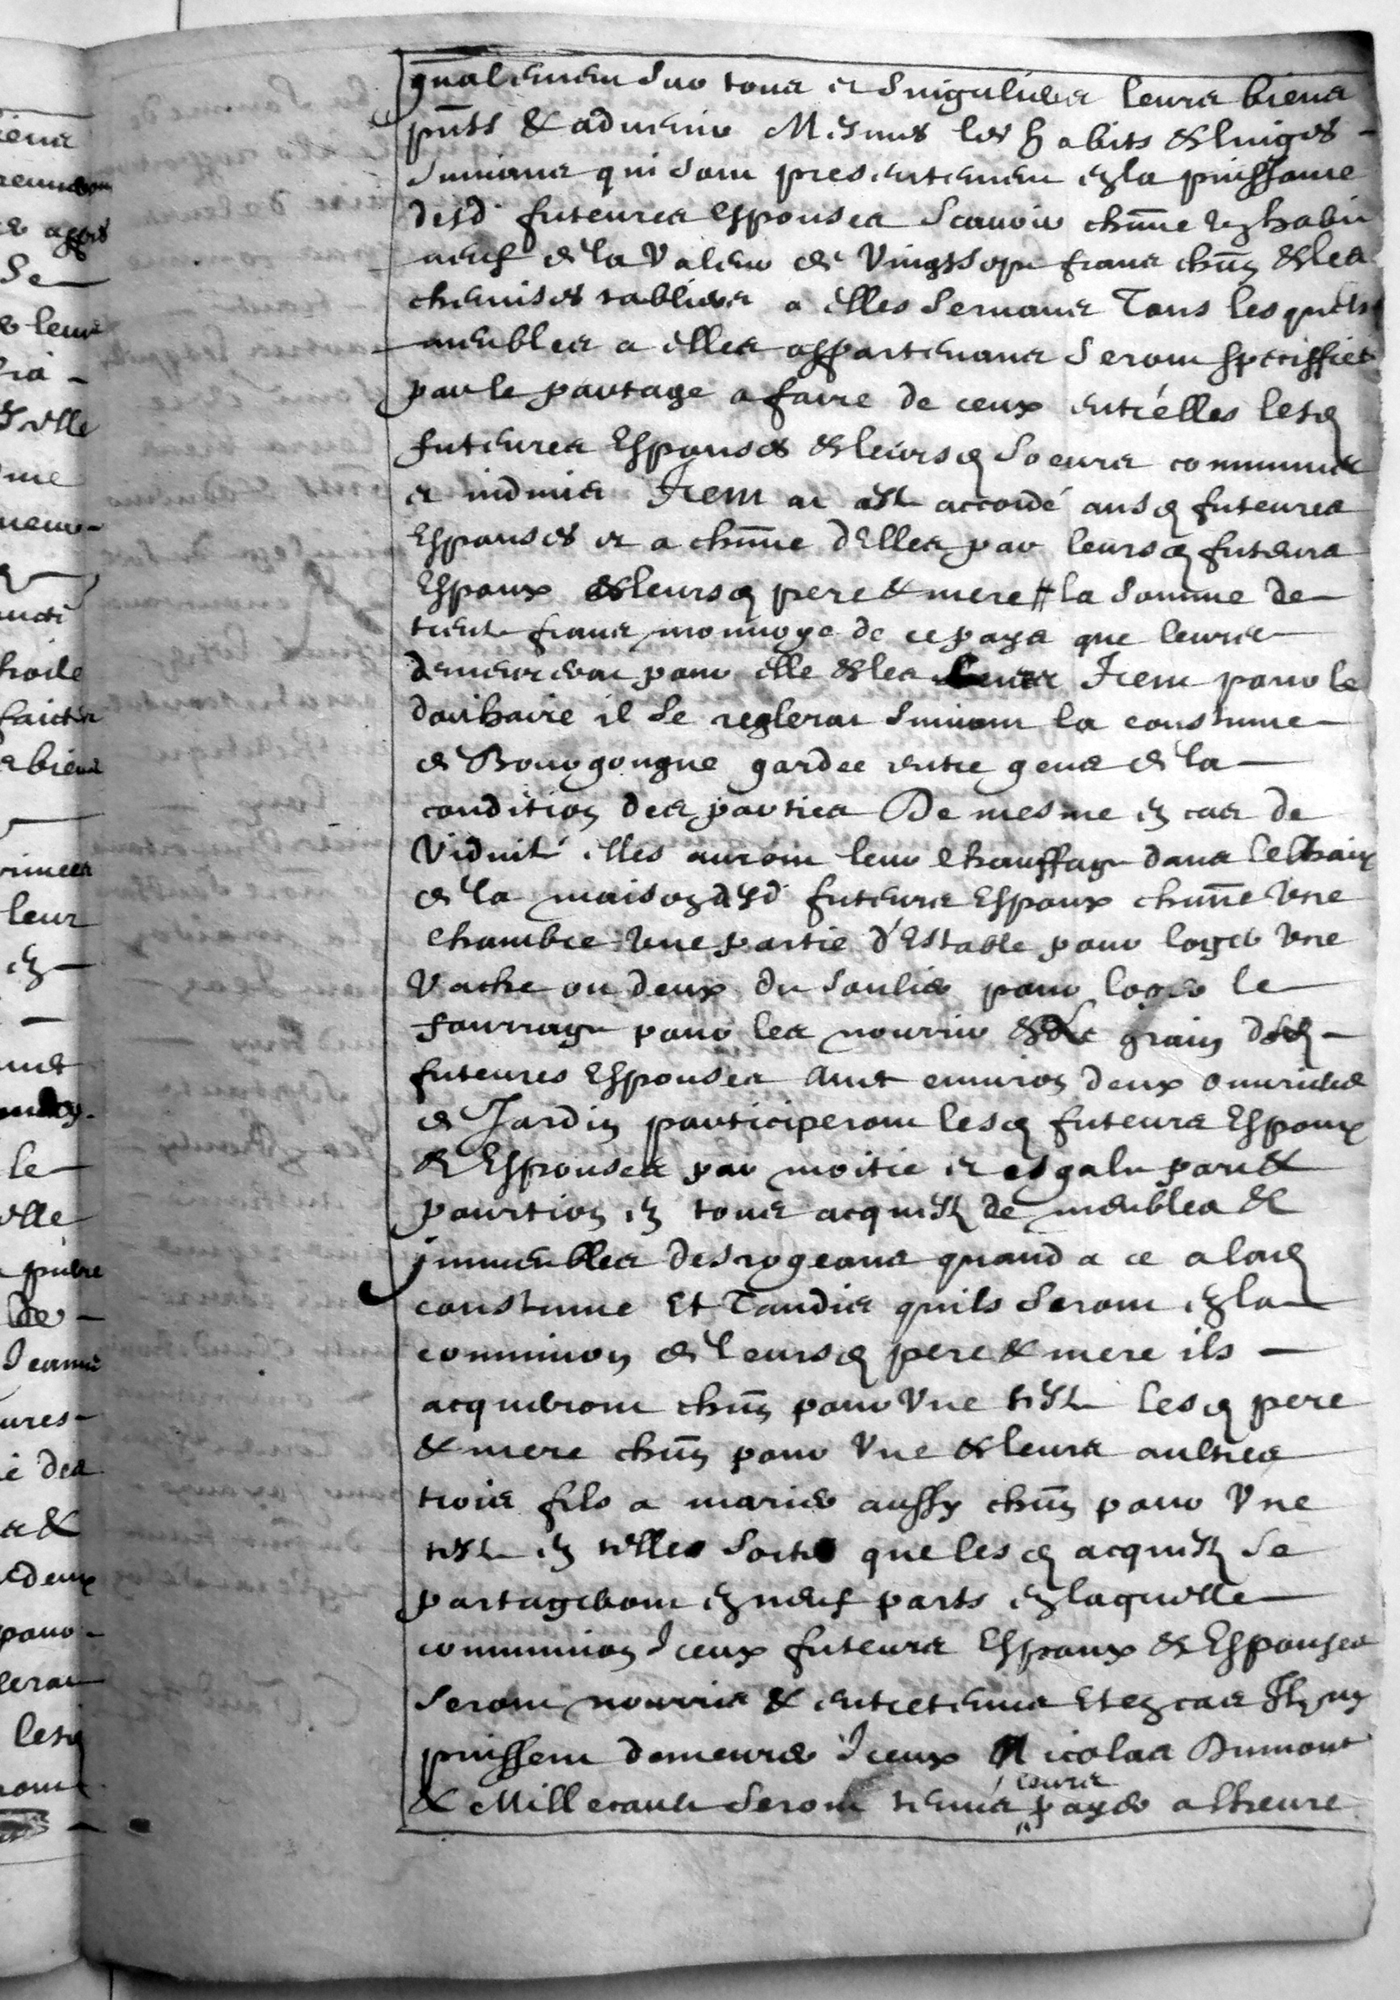 gnalement sur tous et singuliers leurs biens
pnts & advenir Mesmes les habits & linges
suivans qui sont presentement en la puissance
desd. futeures Espouses Scavoir chune un habit
neuf de la valeur de vingt sept frans chun & les
chemises tabliers a elles servans Tous lesquels
meubles a elles appartenans seront speciffiet
par le partage a faire de ceux entre elles lesd
futeures Espouses & leursd soeurs communs
et indivis Item at est accordé ausd futeures
Espouses et a chune d'Elles par leursd futeurs
Espoux & leursd pere & mere # la somme de
trent frans monnoye de ce pays que leurs
demeurerat pour elle & les leurs Item pour le
douhaire il se reglerat suivant la coustume
de Bourgongne gardee entre gens de la
condition des parties De mesme en cas de
viduité elles auront leur chauffage dans
de la maison desd futeurs Espoux chune une
chambre une partie d'Estable pour loger une
vache ou deux du soulier pour loger le
fourrage pour les nourrir & le grain desd
futeures Espouses Avec environ deux ouvrées
de Jardin participeront lesd futeurs Espoux
& Espouses par moitie et esgale part &
pourtion en tous acquest de meubles &
immeubles desrogeans quand a ce a lad
coustume Et Tandis quils seront en la
communion de leursd pere & mere ils
acquerront chun pour une test lesd pere
& mere chun pour une & leurs aultres
trois fils a marier aussy chun pour une
test en telles sorte que lesd acquest se
partageront en neuf parts en laquelle
communion Iceux futeurs Espoux & Espouses
seront nourris & entretenus Et en cas Ilz ny
puissent demeurer Iceux Nicolas Dumont
& Mill seront tenus payer a lheure